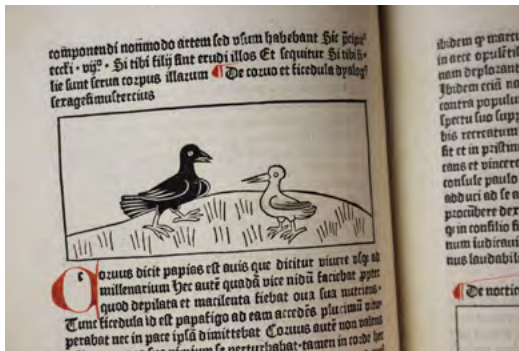 componendi nonmodo artem sed vsum habebant Hic
eccti · vijº · Si tibi filij sint erudi illos Et sequitur Si tibi fi-
lie sunt serua corpus illarum De coruo et ficedula dyalogꝰ
sexagesimustercius
Coruus dicit papias est auis que dicitur viuere vsqꝫ ad
millenarium Hec autē quadā vice nidū faciebat
quod depilata et macilenta fiebat oua sua nutriens·
Tunc ficedula id est papafigo ad eam accedēs plucimū
perabat nec in pace ipsā dimittebat Coruus autē non valens
nimium se perturbabat·tamen in corde
ibidem
in arce
nam deplorant
Ibidem eciā
contra populu
spectu suo
bis recreatum
fit et in pristin
cans et vincere
consule paulo
adduci ad se a
procūbere dex
in consilio
num iudicaui
nus laudabil
De